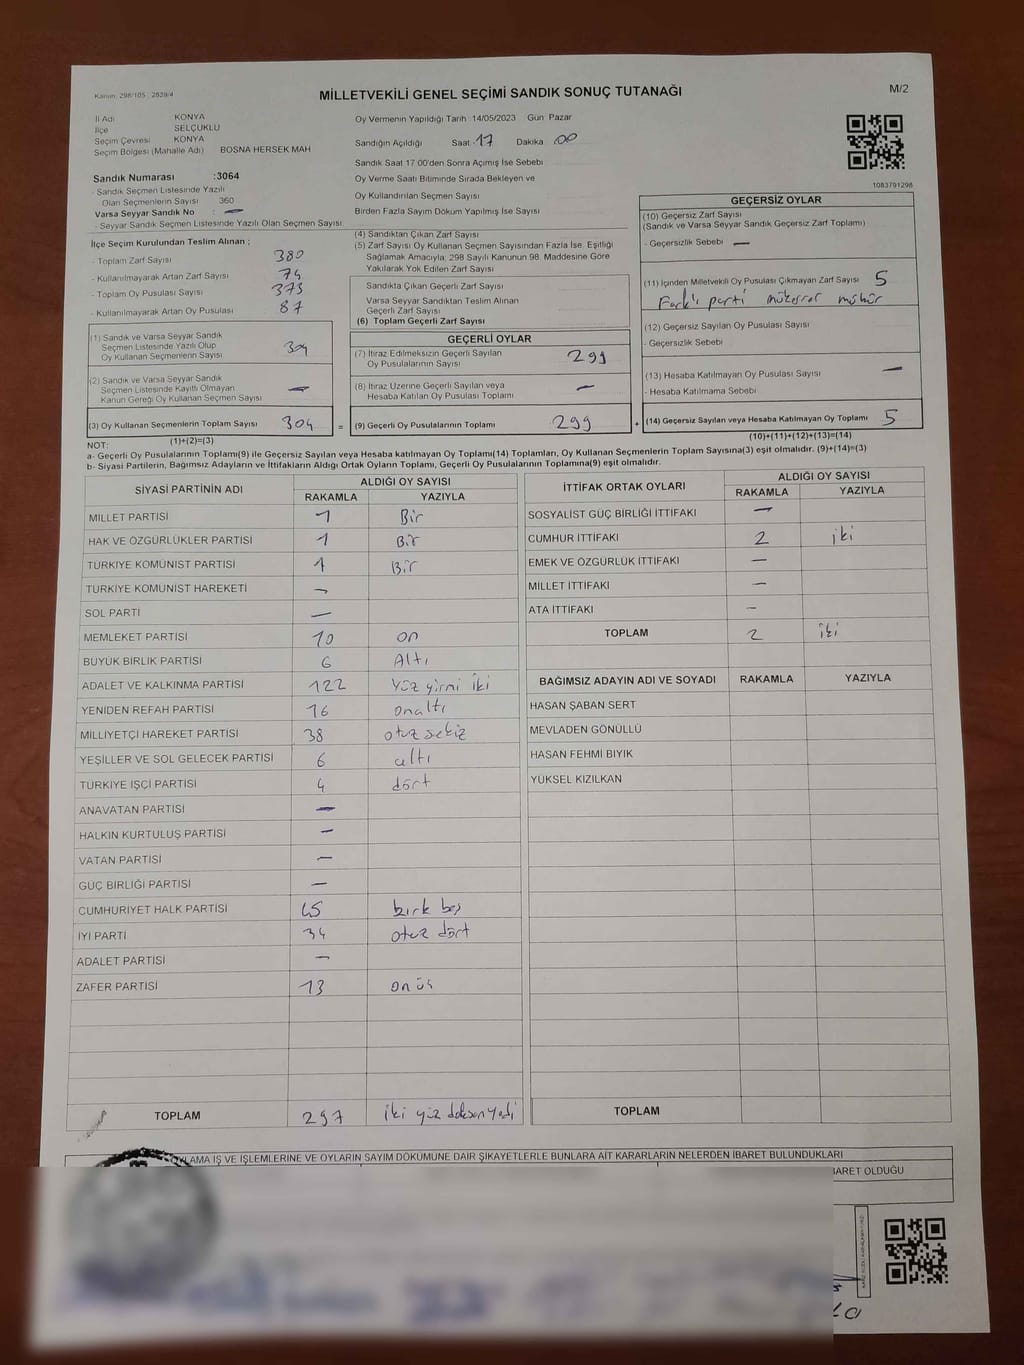 Kanun: 298/105 : 2839/4
MİLLETVEKİLİ GENEL SEÇİMİ SANDIK SONUÇ TUTANAĞI
M/2
İl Adı KONYA
İlçe SELÇUKLU
Seçim Çevresi KONYA
Seçim Bölgesi (Mahalle Adı) BOSNA HERSEK MAH
Sandık Numarası :3064
- Sandık Seçmen Listesinde Yazılı
Olan Seçmenlerin Sayısı 360
Varsa Seyyar Sandık No : —
- Seyyar Sandık Seçmen Listesinde Yazılı Olan Seçmen Sayısı
Oy Vermenin Yapıldığı Tarih : 14/05/2023 Gün Pazar
Sandığın Açıldığı Saat 17 Dakika 00
Sandık Saat 17 00'den Sonra Açımış İse Sebebi
Oy Verme Saati Bitiminde Sırada Bekleyen ve
Oy Kullandırılan Seçmen Sayısı
Birden Fazla Sayım Döküm Yapılmış İse Sayısı
1083791298
İlçe Seçim Kurulundan Teslim Alınan ;
- Toplam Zarf Sayısı 380
- Kullanılmayarak Artan Zarf Sayısı 74
- Toplam Oy Pusulası Sayısı 373
- Kullanılmayarak Artan Oy Pusulası 87
(1) Sandık ve Varsa Seyyar Sandık
Seçmen Listesinde Yazılı Olup
Oy Kullanan Seçmenlerin Sayısı 304
(2) Sandık ve Varsa Seyyar Sandık
Seçmen Listesinde Kayıtlı Olmayan
Kanun Gereği Oy Kullanan Seçmen Sayısı —
(3) Oy Kullanan Seçmenlerin Toplam Sayısı 304 =
(1)+(2)=(3)
(4) Sandıktan Çıkan Zarf Sayısı
(5) Zarf Sayısı Oy Kullanan Seçmen Sayısından Fazla İse, Eşitliği
Sağlamak Amacıyla; 298 Sayılı Kanunun 98. Maddesine Göre
Yakılarak Yok Edilen Zarf Sayısı
Sandıkta Çıkan Geçerli Zarf Sayısı
Varsa Seyyar Sandıktan Teslim Alınan
Geçerli Zarf Sayısı
(6) Toplam Geçerli Zarf Sayısı
GEÇERLİ OYLAR
(7) İtiraz Edilmeksizin Geçerli Sayılan
Oy Pusulalarının Sayısı 299
(8) İtiraz Üzerine Geçerli Sayılan veya
Hesaba Katılan Oy Pusulası Toplamı —
(9) Geçerli Oy Pusulalarının Toplamı 299 +
GEÇERSİZ OYLAR
(10) Geçersiz Zarf Sayısı
(Sandık ve Varsa Seyyar Sandık Geçersiz Zarf Toplamı)
- Geçersizlik Sebebi —
(11) İçinden Milletvekili Oy Pusulası Çıkmayan Zarf Sayısı 5
Farklı parti mükerrer mühür
(12) Geçersiz Sayılan Oy Pusulası Sayısı
- Geçersizlik Sebebi
(13) Hesaba Katılmayan Oy Pusulası Sayısı —
- Hesaba Katılmama Sebebi
(14) Geçersiz Sayılan veya Hesaba Katılmayan Oy Toplamı 5
(10)+(11)+(12)+(13)=(14)
NOT:
a- Geçerli Oy Pusulasının Toplamı(9) ile Geçersiz Sayılan veya Hesaba katılmayan Oy Toplamı(14) Toplamları, Oy Kullanan Seçmenlerin Toplam Sayısına(3) eşit olmalıdır. (9)+(14)=(3)
b- Siyasi Partilerin, Bağımsız Adayların ve İttifakların Aldığı Ortak Oyların Toplamı, Geçerli Oy Pusulalarının Toplamına(9) eşit olmalıdır.
SİYASİ PARTİNİN ADI ALDIĞI OY SAYISI
RAKAMLA YAZIYLA
MİLLET PARTİSİ 1 Bir
HAK VE ÖZGÜRLÜKLER PARTİSİ 1 Bir
TÜRKİYE KOMÜNİST PARTİSİ 1 Bir
TÜRKİYE KOMÜNİST HAREKETİ —
SOL PARTİ —
MEMLEKET PARTİSİ 10 on
BÜYÜK BİRLİK PARTİSİ 6 Altı
ADALET VE KALKINMA PARTİSİ 122 Yüz yirmi iki
YENİDEN REFAH PARTİSİ 16 onaltı
MİLLİYETÇİ HAREKET PARTİSİ 38 otuz sekiz
YEŞİLLER VE SOL GELECEK PARTİSİ 6 altı
TÜRKİYE İŞÇİ PARTİSİ 4 dört
ANAVATAN PARTİSİ —
HALKIN KURTULUŞ PARTİSİ —
VATAN PARTİSİ —
GÜÇ BİRLİĞİ PARTİSİ —
CUMHURİYET HALK PARTİSİ 45 kırk beş
İYİ PARTİ 34 otuz dört
ADALET PARTİSİ —
ZAFER PARTİSİ 13 onüç
TOPLAM 297 iki yüz doksan yedi
İTTİFAK ORTAK OYLARI ALDIĞI OY SAYISI
RAKAMLA YAZIYLA
SOSYALİST GÜÇ BİRLİĞİ İTTİFAKI —
CUMHUR İTTİFAKI 2 iki
EMEK VE ÖZGÜRLÜK İTTİFAKI —
MİLLET İTTİFAKI —
ATA İTTİFAKI —
TOPLAM 2 iki
BAĞIMSIZ ADAYIN ADI VE SOYADI RAKAMLA YAZIYLA
HASAN ŞABAN SERT
MEVLADEN GÖNÜLLÜ
HASAN FEHMİ BIYIK
YÜKSEL KIZILKAN
TOPLAM
OYLAMA İŞ VE İŞLEMLERİNE VE OYLARIN SAYIM DÖKÜMÜNE DAİR ŞİKAYETLERLE BUNLARA AİT KARARLARIN NELERDEN İBARET BULUNDUKLARI
İBARET OLDUĞU